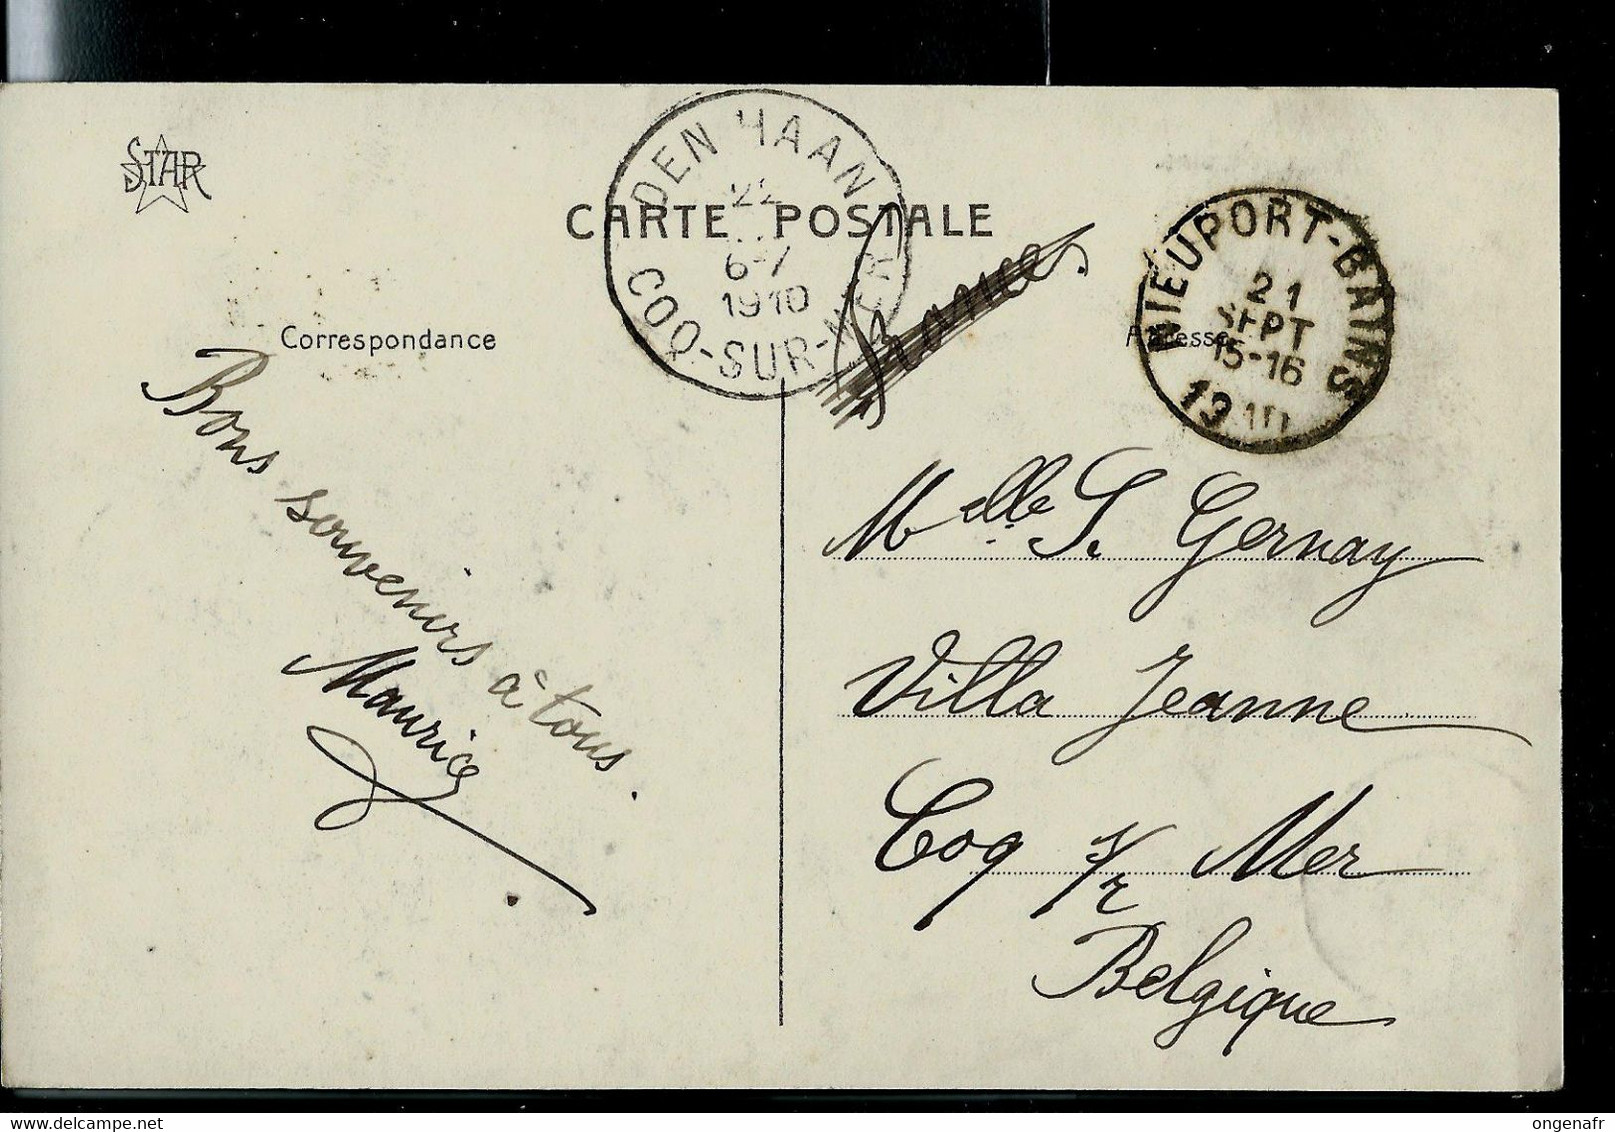 STAR
CARTE POSTALE
DEN HAAN
22
6-7
1910
COQ-SUR-MER
NIEUPORT-BAINS
21
SEPT
15-16
1910
Correspondance
Adresse
Bons souvenirs à tous.
Maurice
Melle S. Gernay
Villa Jeanne
Coq s/r Mer
Belgique
ongenafr